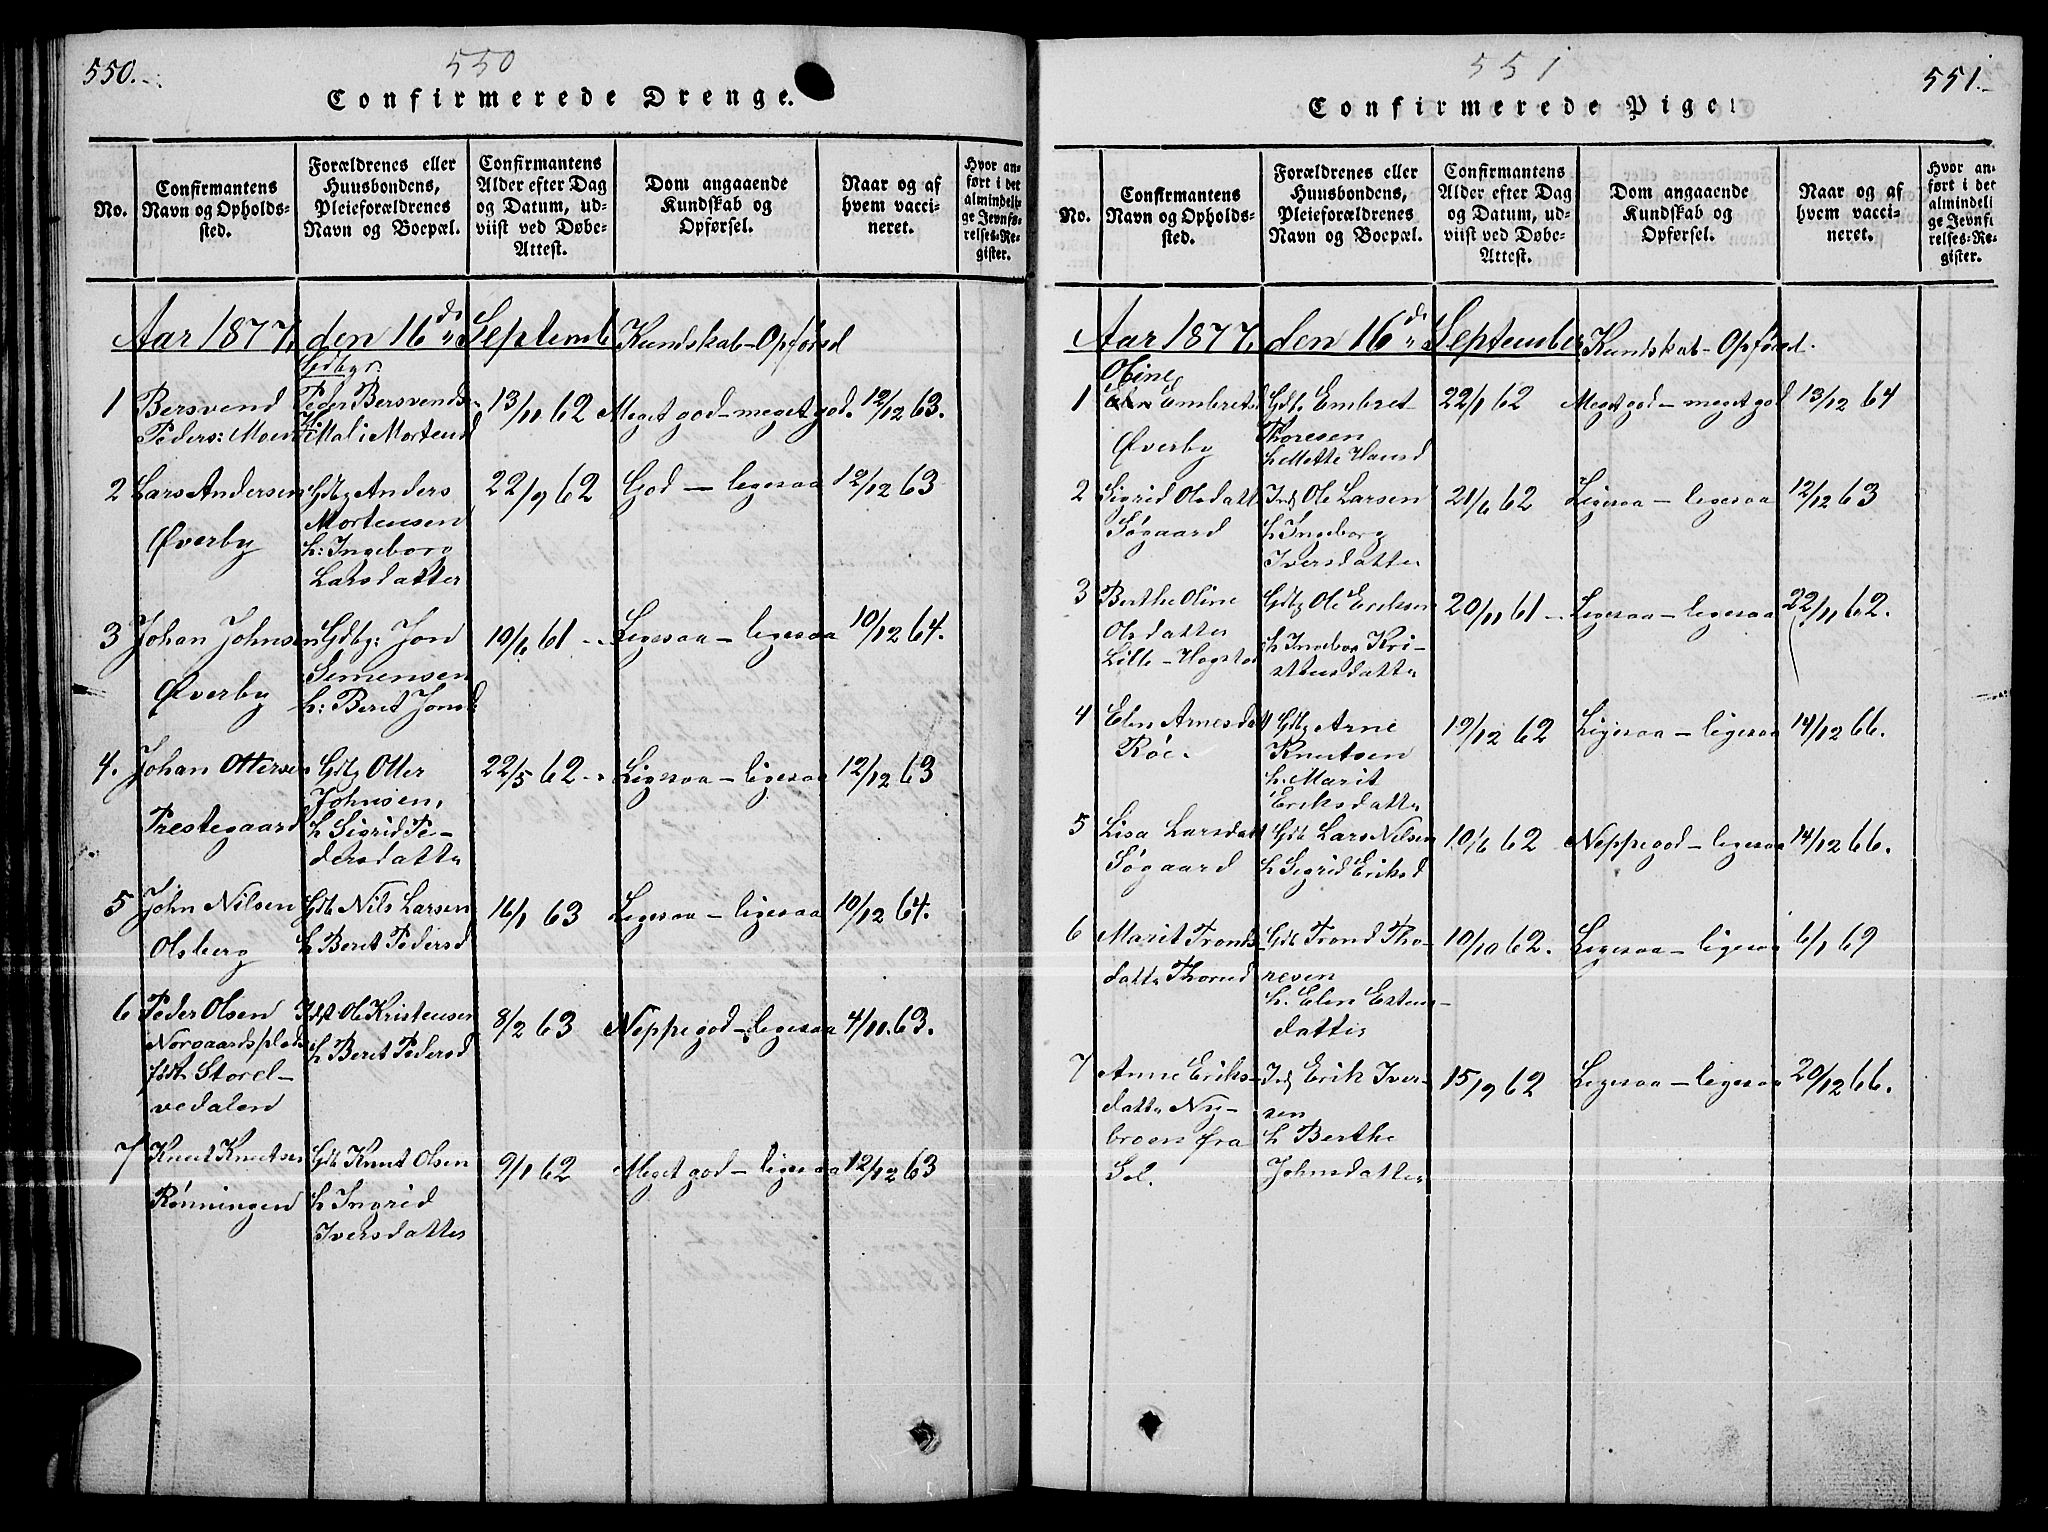 550.
550
Confirmerede Drenge.
No.
Confirmantens
Navn og Opholds-
sted.
Forældrenes eller
Huusbondens,
Pleieforældrenes
Navn og Boepæl.
Confirmantens
Alder efter Dag
og Datum, ud-
viist ved Døbe-
Attest.
Dom angaaende
Kundskab og
Opførsel.
Naar og af
hvem vacci-
neret.
Hvor an-
ført i det
almindeli-
ge Jevnfø-
relses-Re-
gister.
Aar 1877 den 16de September Kundskab-Opførsel
1 Bersvend
Peders: Moen
Gdbgr.
Peder Bersvends.
Mali Mortensd
13/11 62 Meget god-meget god. 12/12 63.
2 Lars Andersen
Øverby
Gdbg Anders
Mortensen
h: Ingeborg
Larsdatter
22/9 62 God - ligesaa 12/12 63
3 Johan Johnsen
Øverby
Gdbg: Jon
Semensen
h: Beret Jonsd:
19/6 61 - Ligesaa - ligesaa 10/12 64.
4. Johan Ottersen
Prestegaard
Gdbg Otter
Johnsen,
h Sigrid Pe-
dersdatter
22/5 62 - Ligesaa - ligesaa 12/12 63
5 John Nilsen
Olsberg
Gdb Nils Larsen
h Beret Pedersd
16/1 63 Ligesaa - ligesaa 10/12 64.
6 Peder Olsen
Norgaardsplads
født Storel-
vedalen
Idst Ole Kristensen
h Beret Pedersd
8/2 63 Neppe god - ligesaa 4/11. 63.
7 Knut Knutsen
Rønningen
Gdb Knut Olsen
h Ingrid
Iversdatter
9/1 62 Meget god - ligesaa 12/12 63
551.
551
Confirmerede Piger
No.
Confirmantens
Navn og Opholds-
sted.
Forældrenes eller
Huusbondens,
Pleieforældrenes
Navn og Boepæl.
Confirmantens
Alder efter Dag
og Datum, ud-
viist ved Døbe-
Attest.
Dom angaaende
Kundskab og
Opførsel.
Naar og af
hvem vacci-
neret.
Hvor an-
ført i det
almindeli
ge Jevnfø
relses-Re-
gister.
Aar 1877 den 16de September Kundskab-Opførsel.
1 Oline
Embretsd
Øverby
Gdb Embret
Thoresen
h Mette Hansd
22/1 62 Meget god - meget god 13/12 64
2 Sigrid Olsdatt
Søgaard
Inds Ole Larsen
h Ingeborg
Iversdatter
21/6 62 Ligesaa - ligesaa 12/12 63
3 Berthe Oline
Olsdatter
Lille-Hogstad
Gdbg Ole Eriksen
h Ingebor Kri-
stensdatter
20/11 61 - Ligesaa - ligesaa 22/11 62.
4 Elen Arnesdatt
Røe.
Gdbg Arne
Knutsen
h. Marit
Eriksdatter
19/12 62 Ligesaa - ligesaa 14/12 66.
5 Lisa Larsdatt
Søgaard
Gdb Lars Nilsen
h Sigrid Eriksd
10/6 62 Neppe god - ligesaa 14/12 66.
6 Marit Tronds-
datter Thorud
Gdb Trond Tho-
resen
h. Elen Estens-
datter
10/10 62. Ligesaa - ligesaa 6/1 69
7 Anne Eriks-
datter Ny-
broen fra
Sol.
Inds Erik Iver-
sen
h Berthe
Johnsdatter
15/9 62 Ligesaa - ligesaa 20/12 66.